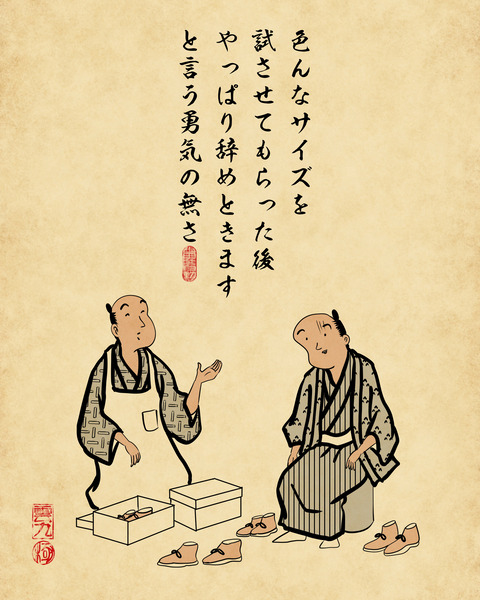 色んなサイズを
試させてもらった後
やっぱり辞めときます
と言う勇気の無さ